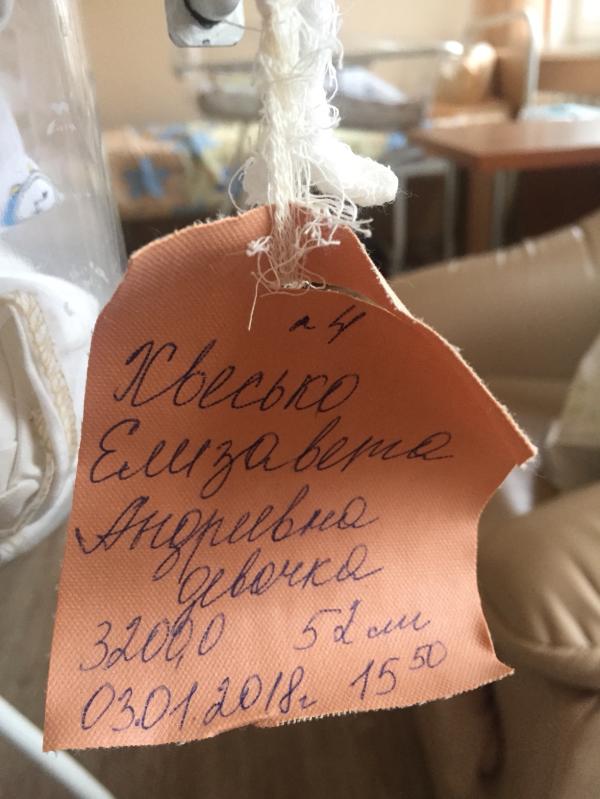 п 4
Хвесько
Елизавета
Андреевна
девочка
3200,0 52 см
03.01.2018г 15 50